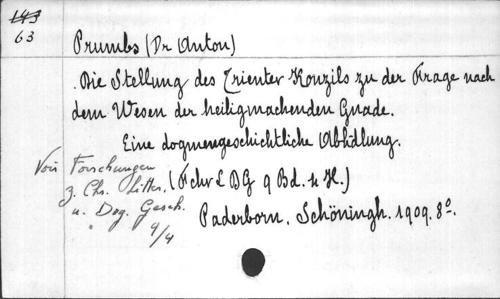 143
63
Prumbs (Dr Anton)
Die Stellung des Trienter Konzils zu der Frage nach
dem Wesen der heiligmachenden Gnade.
Eine dogmengeschichtliche Abhdlung.
Forschungen
z. Chr. Litter.
u. Dog. Gesch.
9/4
(Fchr L DG 9 Bd. 4 H.)
Paderborn. Schöningh. 1909. 8º.